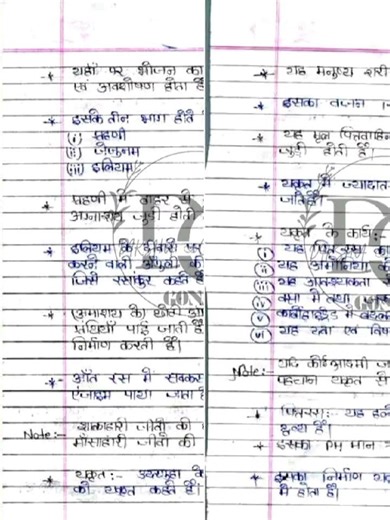 यहाँ पर भोजन का
एवं अवशोषण होता है
इसके तीन भाग होते
(i) ग्रहणी
(ii) जेजुनम
(iii) इलियम
ग्रहणी में बाहर से
अग्नाशय जुड़ी होती
इलियम के दीवारों पर
करने वाली अंगुली के
जिसे रसांकुर कहते है
(अमाशय के) छोटी आँ
ग्रंथियाँ पाई जाती है
निर्माण करती है।
आँत रस में
एंजाइम पाया जाता है
Note:- शाकाहारी जीवों की
मांसाहारी जीवों की
यकृत:-
को यकृत कहते है।
यह मनुष्य शरी
इसका वजन 1-
यह
जुड़ी होती है।
यकृत में ज्यादात
जाते है।
यकृत के कार्य:
(i) यह पित्त रस का
(ii) यह अमोनिया
(iii) यह आवश्यकता
(iv) वसा में तथा
(v) कार्बोहाइड्रेट में बदल
(vi) यह रक्त एवं विष
Note:- यदि कोई आदमी ज
पहचान यकृत से
पित्तरस:- यह हल्
द्रव्य है।
इसका PH मान
इसका निर्माण यकृ
में होता है।